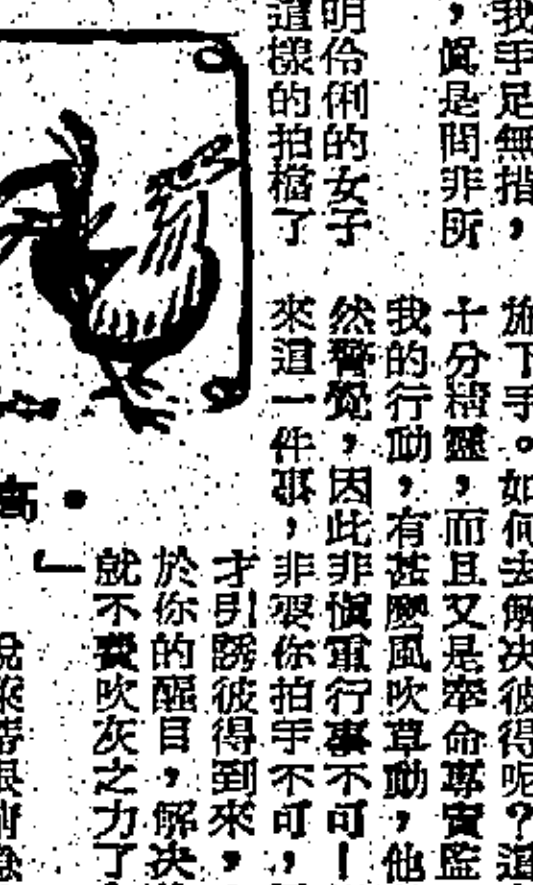 我手足無措，
，眞是問非所
明伶俐的女子
這樣的拍檔了
施下手。如何去解决彼得呢？這
十分精靈，而且又是奉命專責監
我的行動，有甚麽風吹草動，他
然警覺，因此非愼重行事不可！
來這一件事，非要你拍手不可，
才引誘彼得到來，
於你的醒目，解决
就不費吹灰之力了
」